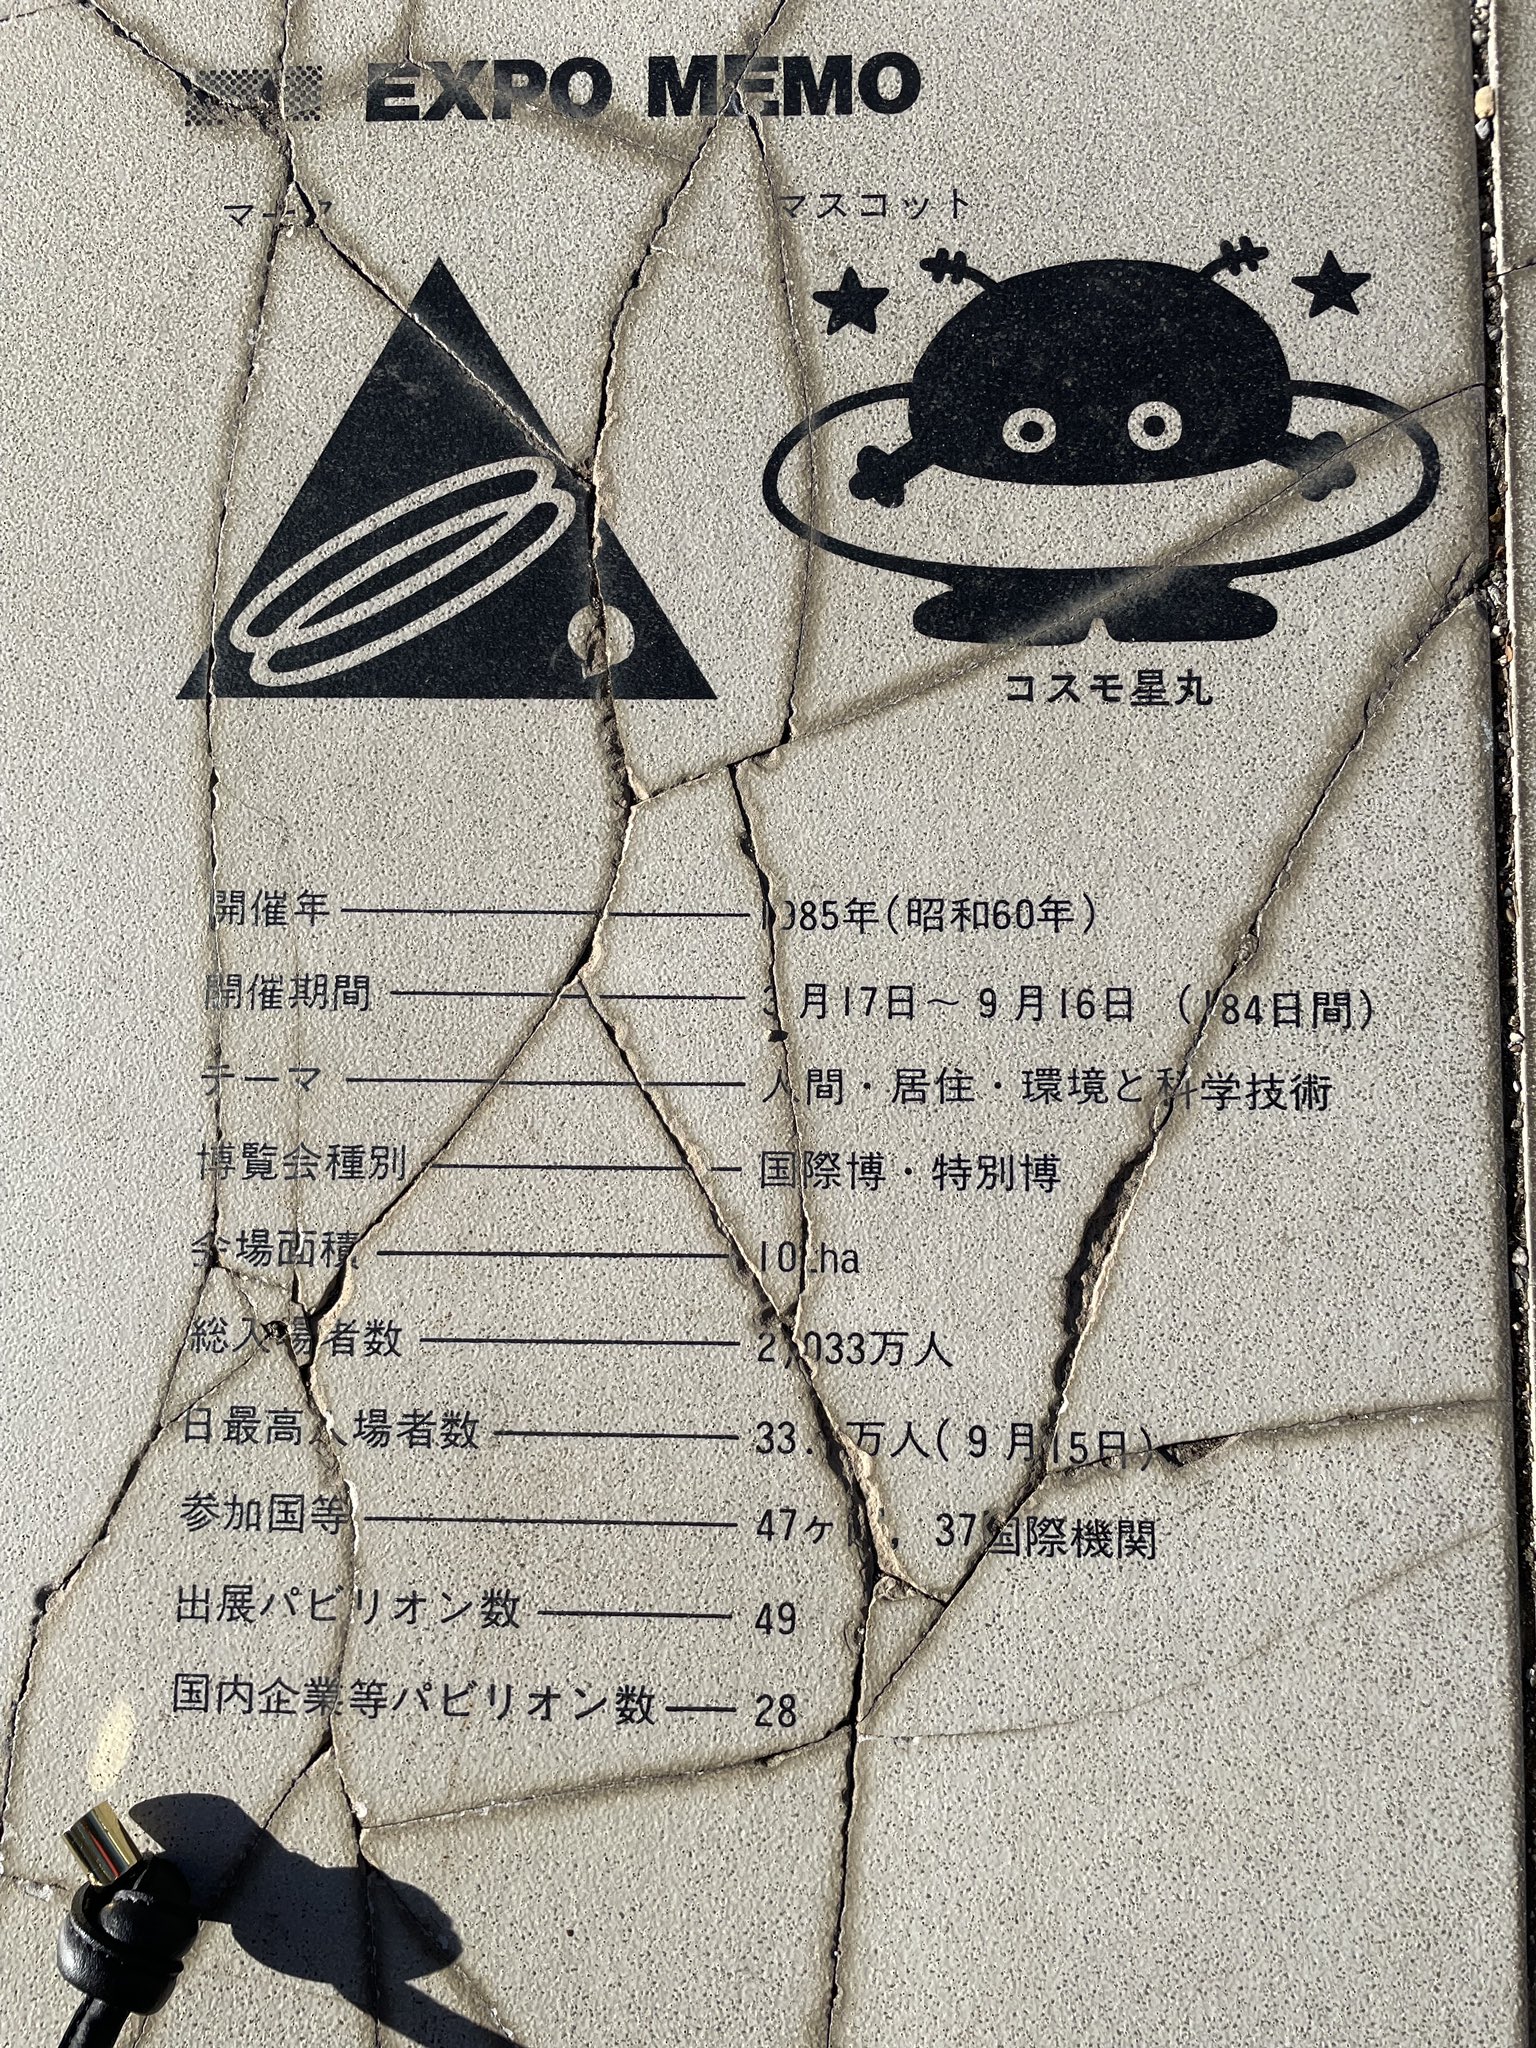 EXPO MEMO
マーク
マスコット
コスモ星丸
開催年 1985年(昭和60年)
開催期間 3月17日～9月16日 (184日間)
テーマ 人間・居住・環境と科学技術
博覧会種別 国際博・特別博
会場面積 ha
総入場者数 2,033万人
日最高入場者数 万人(9月15日)
参加国等 47ヶ国, 37国際機関
出展パビリオン数 49
国内企業等パビリオン数 28